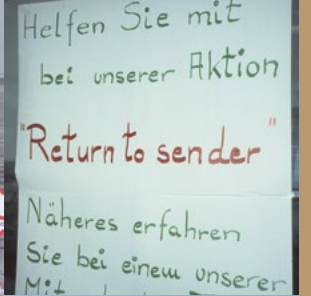 Helfen Sie mit
bei unserer Aktion
"Return to sender"
Näheres erfahren
Sie bei einem unserer